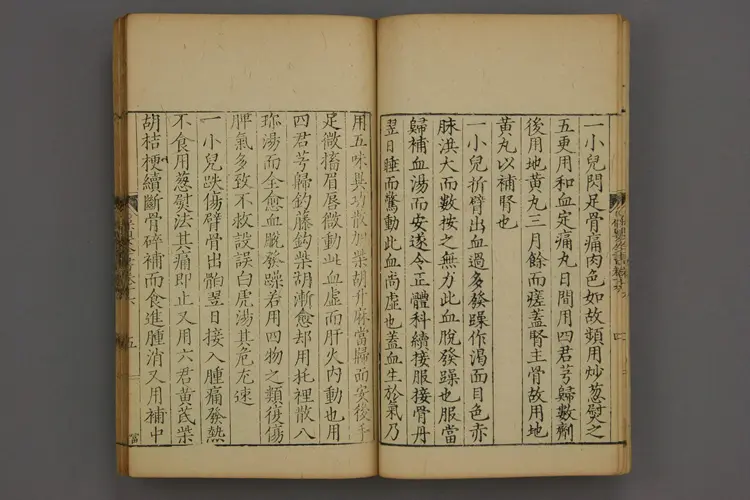 一小兒閃足骨痛肉色如故頻用炒葱熨之
五更用和血定痛丸日間用四君芎歸數劑
後用地黄丸三月餘而瘥蓋腎主骨故用地
黄丸以補腎也
一小兒折臂出血過多發躁作渴面目色赤
脉洪大而數按之無力此血脫發躁也服當
歸補血湯而安遂令正體科續接服接骨丹
翌日睡而驚動此血尚虚也蓋血生於氣乃
用五味異功散加柴胡升麻當歸而安後手
足微搐眉唇微動此血虚而肝火内動也用
四君芎歸釣藤鈎柴胡漸愈却用托裡散八
珎湯而全愈血脫發躁若用四物之類復傷
脾氣多致不救設誤白虎湯其危尤速
一小兒跌傷臂骨出䯊翌日接入腫痛發熱
不食用葱熨法其痛即止又用六君黄芪柴
胡桔梗續斷骨碎補而食進腫消又用補中
五